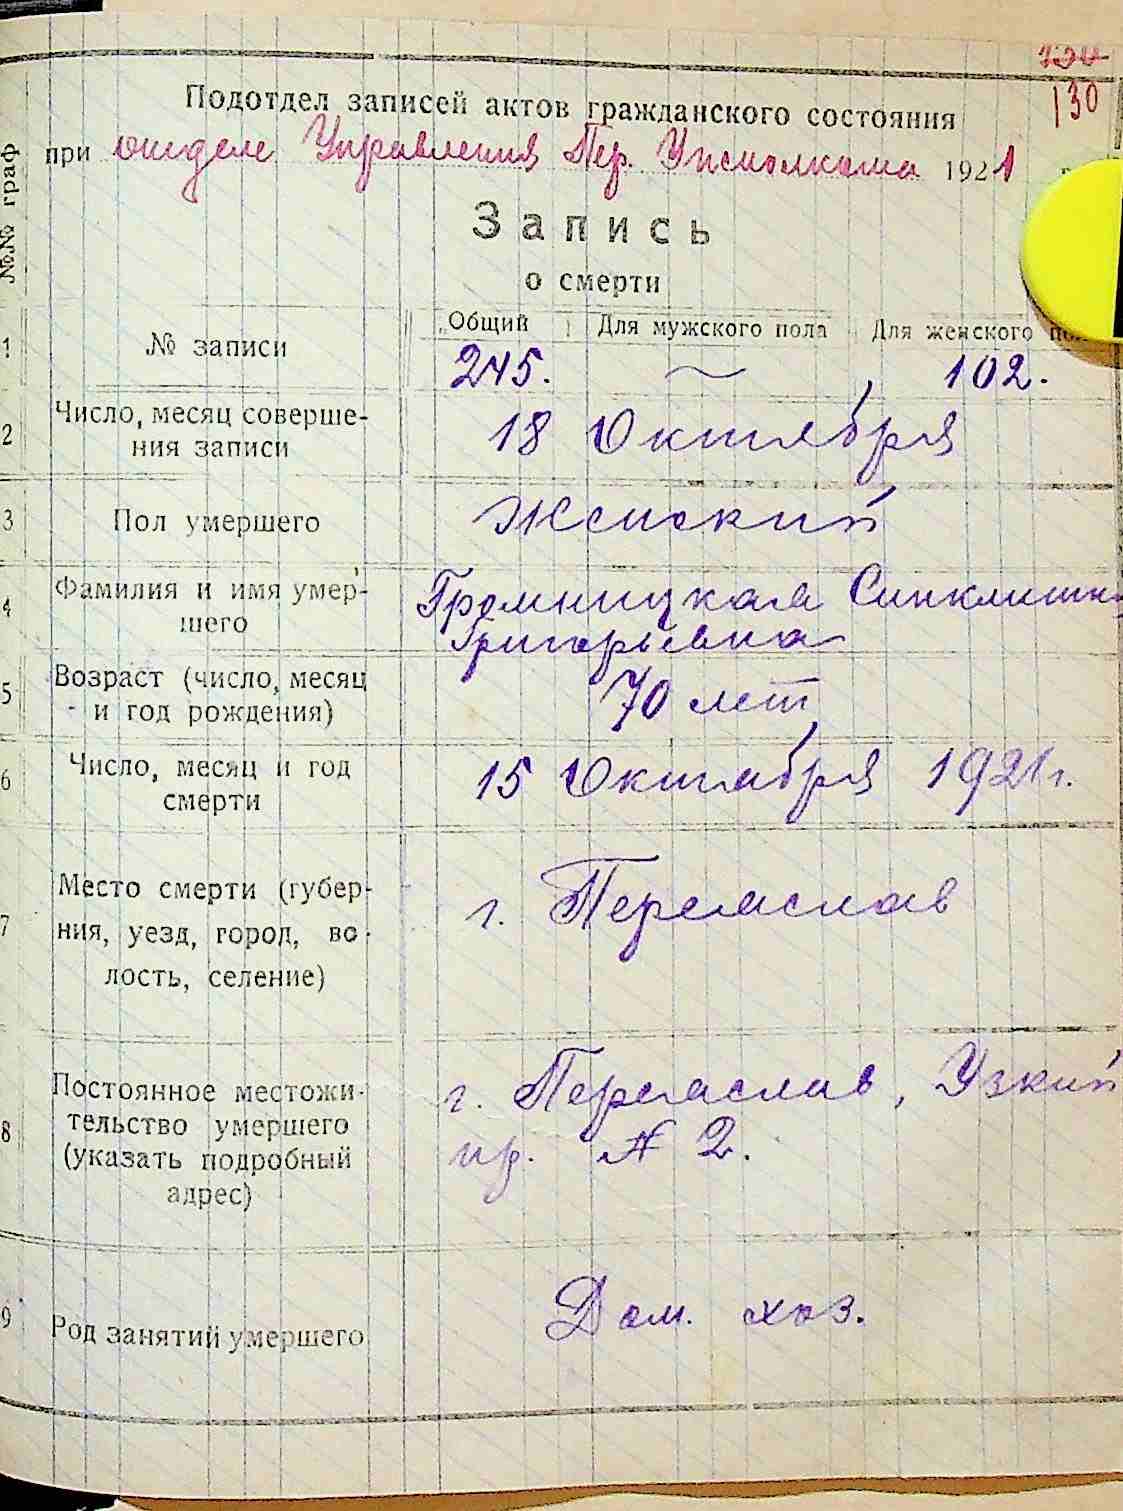 130
130
Подотдел записей актов гражданского состояния
при отделе Управления Пер. Уисполкома 1921
№№ граф
Запись
о смерти
1 № записи Общий Для мужского пола Для женского
245. — 102.
2 Число, месяц соверше-
ния записи
18 Октября
3 Пол умершего Женский
4 Фамилия и имя умер-
шего
Громницкая
Григорьевна
5 Возраст (число, месяц
и год рождения)
70 лет
6 Число, месяц и год
смерти
15 Октября 1921г.
7 Место смерти (губер-
ния, уезд, город, во-
лость, селение)
г. Переяслав
8 Постоянное местожи-
тельство умершего
(указать подробный
адрес)
г. Переяслав, Узкий
пр. № 2.
9 Род занятий умершего Дом. хоз.